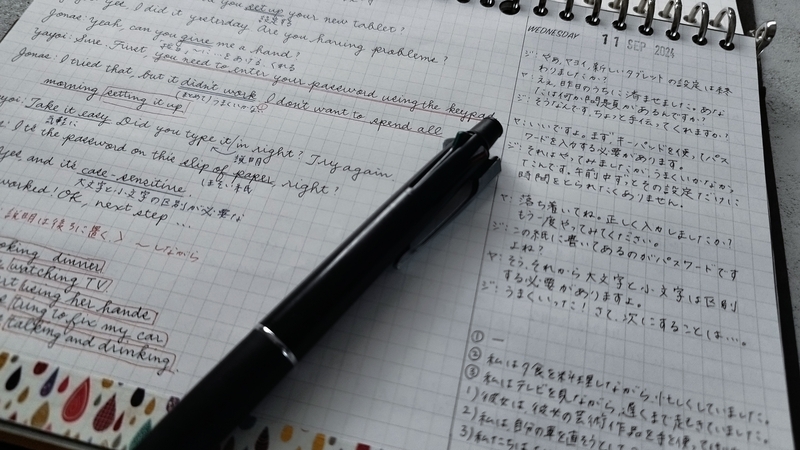 you set up your new tablet?
設定する
Jonas: yeah, I did it yesterday. Are you having problems?
yeah, can you give me a hand?
Yayoi: Sure. First, you need to enter your password using the keypad
Jonas: I tried that, but it didn't work. I don't want to spend all
morning setting it up
yoi: Take it easy. Did you type it in right? Try again
気楽に
説明
: Is the password on this slip of paper, right?
yes, and it's case-sensitive.
大文字と小文字の区別が必要な
worked! OK, next step ...
説明は後ろに置く 〜しながら
oking dinner
watching TV
using her hands
trying to fix my car
talking and drinking.
WEDNESDAY
11 SEP 2024
ジ: やあ、ヤヨイ、新しいタブレットの設定は終
わりましたか?
ヤ: ええ、昨日のうちに済ませました。あな
たは何か問題があるんですか?
ジ: そうなんです、ちょっと手伝ってくれますか?
ヤ: いいですよ。まず、キーパッドを使ってパス
ワードを入力する必要があります。
ジ: それはやってみましたが、うまくいかなかっ
たんです。午前中ずっとその設定だけに
時間をとられたくありません。
ヤ: 落ち着いてね。正しく入力しましたか?
もう一度やってみてください。
ジ: この紙に書いてあるのがパスワードです
よね?
ヤ: そう、それから大文字と小文字は区別
する必要がありますよ。
ジ: うまくいった! さて、次にすることは…。
① —
② 私は夕食を料理しながら、忙しくしていました。
③ 私はテレビを見ながら、遅くまで起きていました。
1) 彼女は、彼女の芸術作品を手を使って
2) 私は自分の車を直そうとして
3) 私たちは